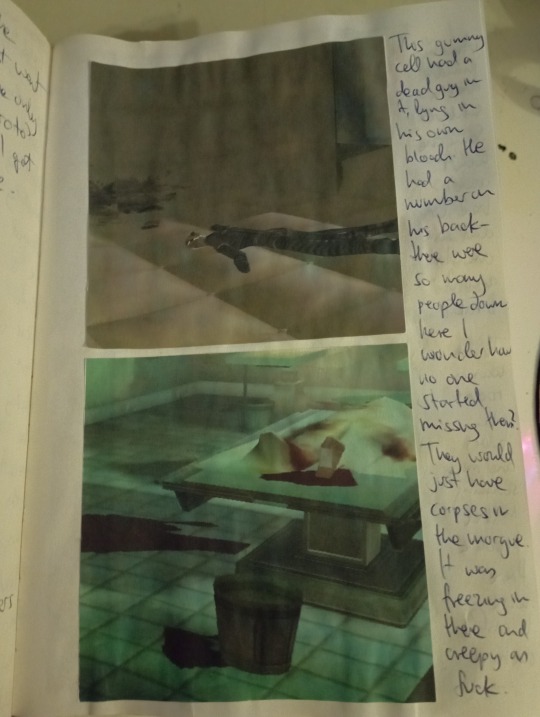 he
t went
e only
I got
e.
This gummy
cell had a
dead guy in
it, lying in
his own
blood. He
had a
number on
his back –
there were
so many
people down
here I
wonder how
no one
started
missing them?
They would
just have
corpses in
the morgue.
It was
freezing in
there and
creepy as
fuck.
ers